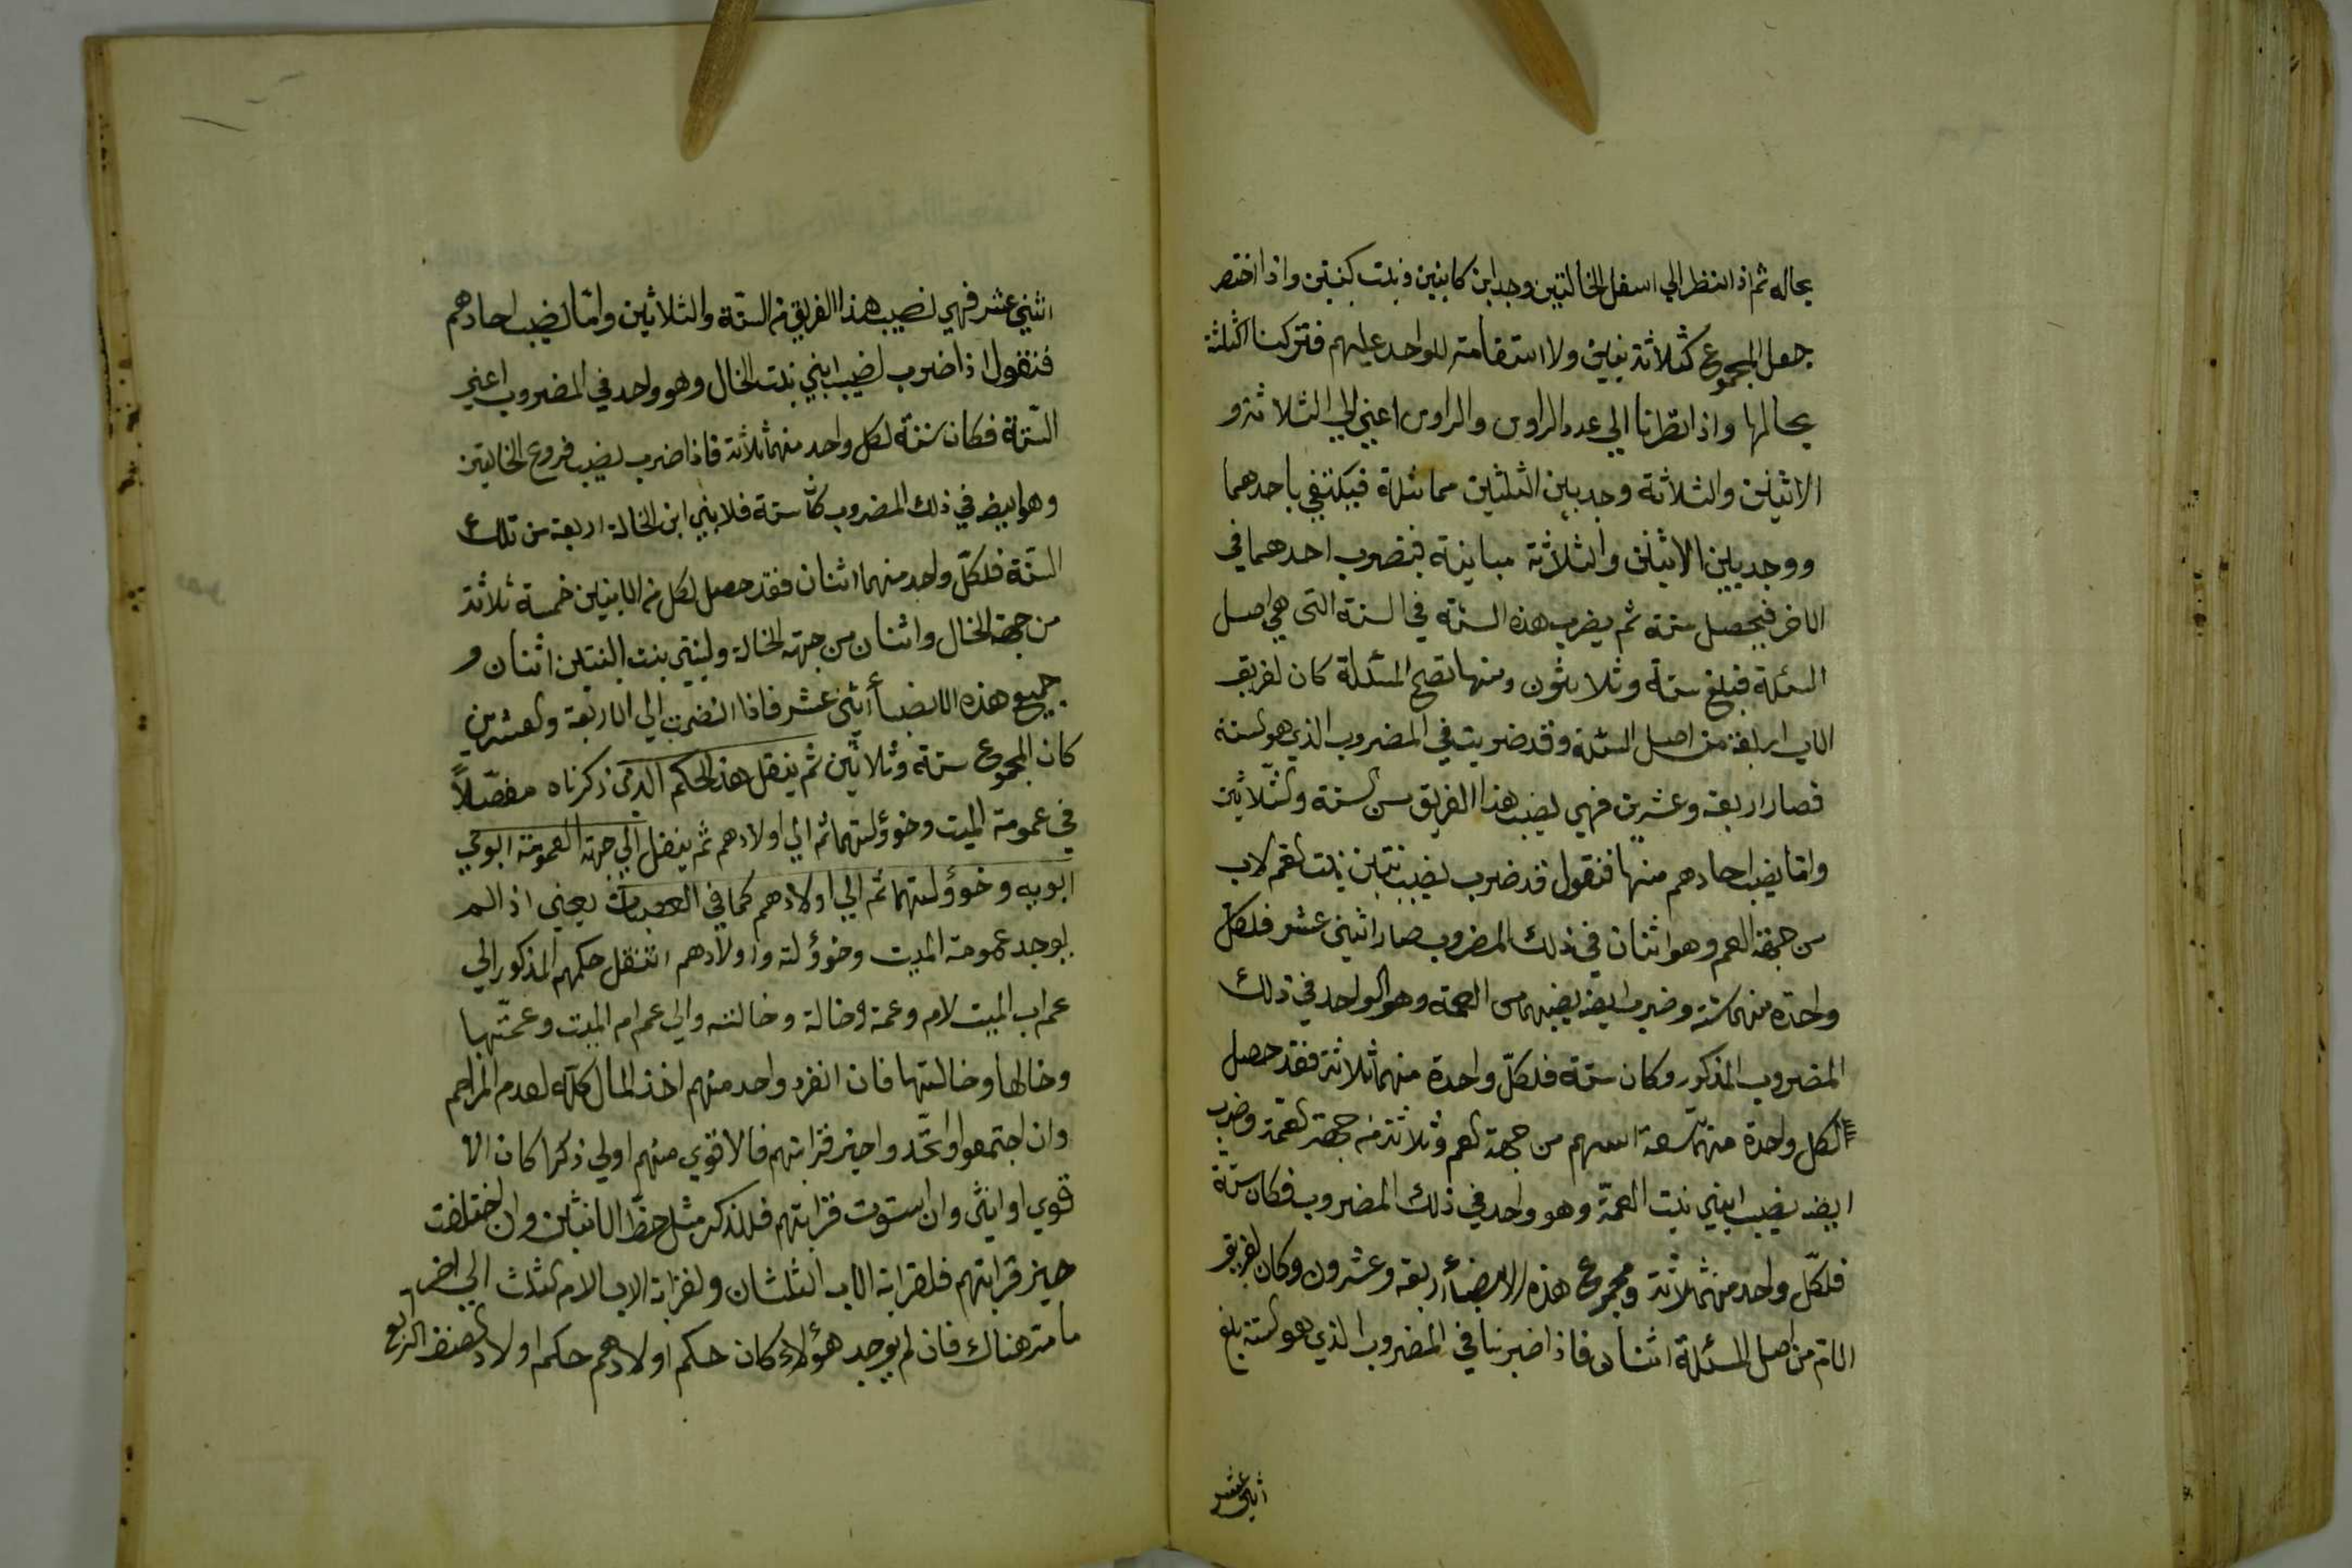 بحاله ثم اذا نتظر الي اسفل الخالتين وجد ابن كابنين وبنت كبنتين واذا اختصر
جعل المجموع كثلاثة بنين ولا استقامة للواحد عليهم فتركنا الثلثة
بحالها واذا نظرنا الي عدد الراوس والراوس اعني الي الثلاثة و
الاثنين والثلاثة وجد بين الثلثين مماثلة فيكتفي باحدهما
ووجد بين الاثنين والثلاثة مباينة فيضرب احدهما في
الاخر فيحصل ستة ثم يضرب هذه الستة في الستة التي هي اصل
المسئلة فبلغ ستة وثلاثون ومنها تصح المسئلة كان لفريق
الاب اربعة من اصل المسئلة وقد ضربت في المضروب الذي هو الستة
فصار اربعة وعشرين فهي نصيب هذا الفريق من الستة والثلاثين
واما نصيب احادهم منها فنقول قد ضرب نصيب بنتين بنت العم لاب
من جهة العم وهو اثنان في ذلك المضروب صار اثني عشر فلكل
واحدة منهما ستة وضرب ايضه نصيبهما من العمة وهو الواحد في ذلك
المضروب المذكور وكان ستة فلكلّ واحدة منهما ثلاثة فقد حصل
لكل واحدة منهما تسعة اسهم من جهة العم وثلاثة من جهة العمّة وضرب
ايضه نصيب ابني بنت العمّة وهو واحد في ذلك المضروب فكان ستّة
فلكلّ واحد منهما ثلاثة ومجموع هذه الانصبأ اربعة وعشرون وكان لفريق
الام من اصل المسئلة اثنان فاذا ضربنا في المضروب الذي هو الستة بلغ
اثني عشر
اثني عشر فهي نصيب هذا الفريق من الستّة والثلاثين وامّا نصيب احادهم
فنقول اذا ضرب نصيب ابني بنت الخال وهو واحد في المضروب اعني
الستّة فكان ستّة لكل واحد منهما ثلاثة فاذا ضرب نصيب فروع الخالتين
وهو ايضه في ذلك المضروب كان ستة فلابني ابن الخالة اربعة من تلك
الستّة فلكلّ واحد منهما اثنان فقد حصل لكل من الابنين خمسة ثلاثة
من جهة الخال واثنان من جهة الخالة ولبنتي بنت البنتين اثنان و
جميع هذه الانصبأ اثني عشر فاذا انضمت الي الاربعة والعشرين
كان المجموع ستة وثلاثين ثم ينقل هذا الحكم الذي ذكرناه مفصّلاً
في عمومة الميت وخوؤلتهما ثم الي اولادهم ثم ينقل الي جهة العمومة ابوي
ابويه وخوؤلتهما ثم الي اولادهم كما في العصبات يعني اذا لم
يوجد عمومة الميت وخوؤلته واولادهم انتقل حكمهم المذكور الي
عم اب الميت لام وعمة وخالة وخالته والي عم ام الميت وعمّتها
وخالها وخالتها فان انفرد واحد منهم اخذ المال كله لعدم المزاحم
وان اجتمعوا واتّحد واحيز قرابتهم فالاقوي منهم اولي ذكرا كان الا
قوي او انثى وان استوت قرابتهم فللذكر مثل حظّ الانثيين وان اختلفت
حيز قرابتهم فلقرابة الاب الثلثان ولقرابة الاب الام الثلث الي اخر
ما مر هناك فان لم يوجد هؤلاء كان حكم اولادهم حكم اولاد الصنف الرابع